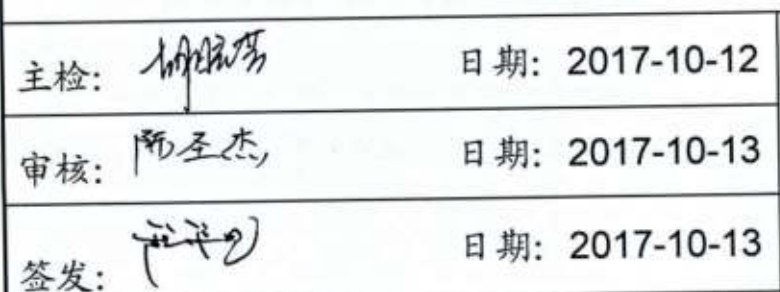 主检: 日期: 2017-10-12
审核: 陈圣杰 日期: 2017-10-13
签发: 日期: 2017-10-13